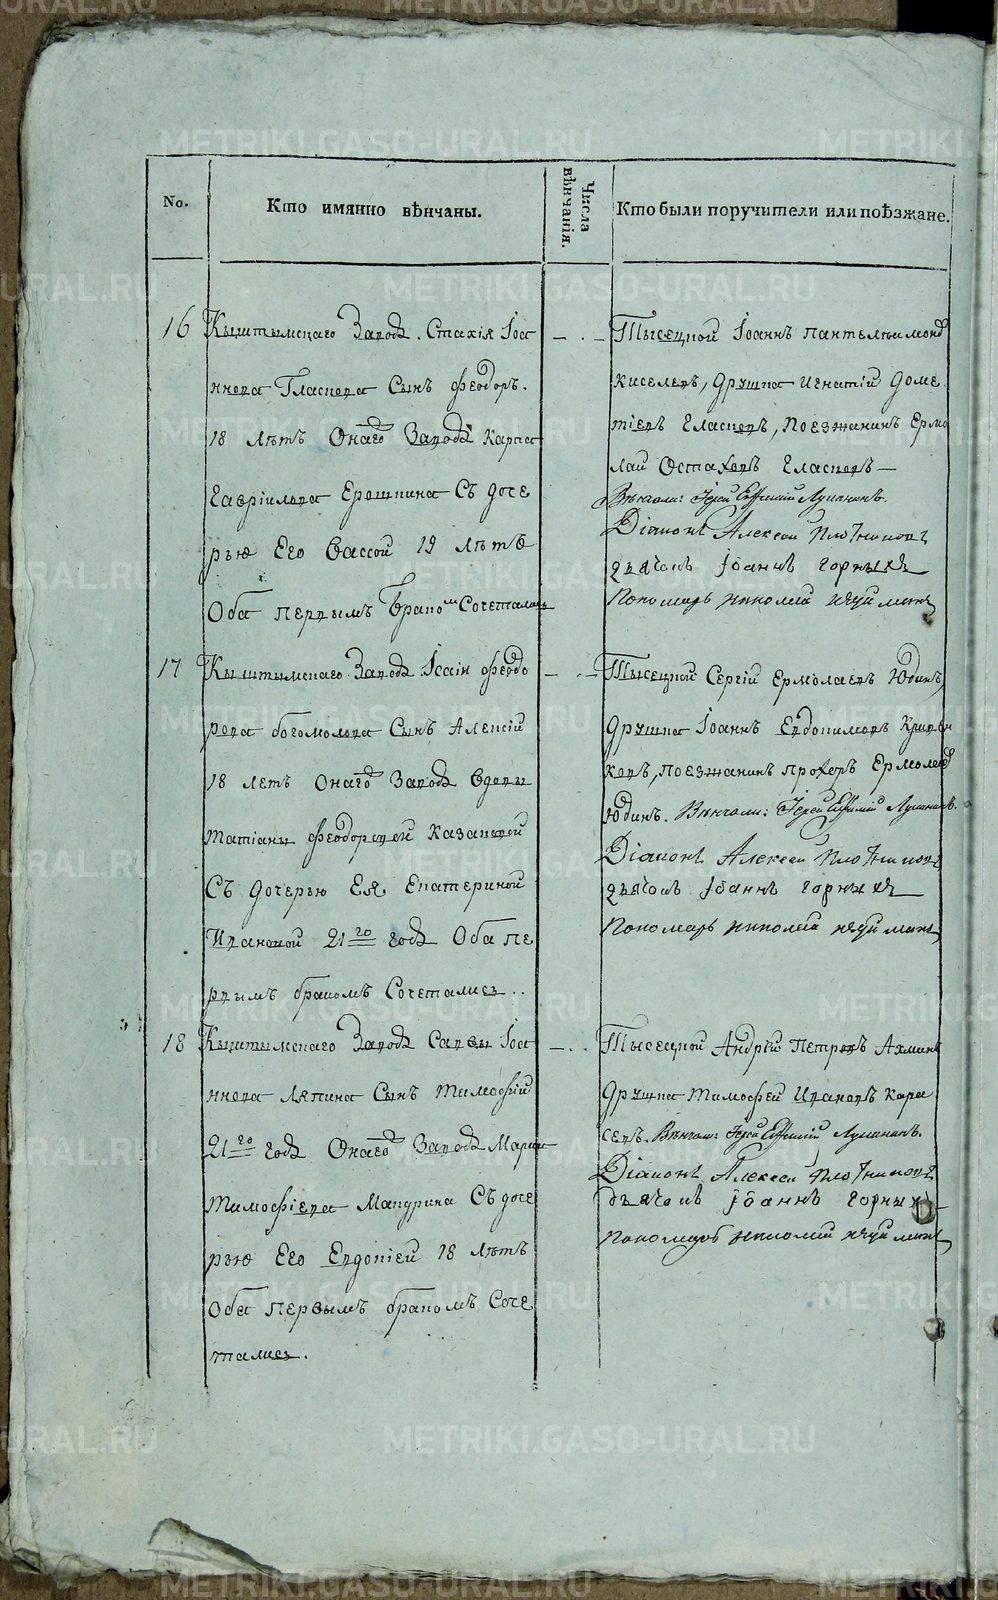 No.
Кто имянно вѣнчаны.
Числа вѣнчанія.
Кто были поручители или поѣзжане.
16 Кыштымскаго Завода. Стахія Іоа
ннова Гласкова Сынъ Феодоръ.
18 лѣтъ Онаго Завода Карпа
Гавріилова Ерошкина Съ доче
рью Его Вассой 19 лѣтъ
Оба первымъ Бракомъ Сочетались
Тысецкой Іоаннъ Пантелѣимонов
Киселевъ, Дружка Игнатій Доме
тіевъ Гласковъ, Поезжанинъ Ермо
лай Остаховъ Гласковъ —
Вѣнчали: Іерей Ефимій Лукинъ.
Діаконъ Алексеи Плотниковъ
дьячокъ Іоаннъ горныхъ
Пономарь николай
17 Кыштымскаго Завода Ісаіи Феодо
рова богомолова Сынъ Алексій
18 летъ Онаго Завода Вдовы
татіаны Феодоровой Казанцовой
Съ дочерью Ея Екатериной
Ивановой 21го года Оба пе
рвымъ бракомъ Сочетались..
Тысецкой Сергій Ермолаевъ Юдинъ,
Дружка Іоаннъ Евдокимовъ
ковъ, поезжанинъ прохоръ Ермолаев
Юдинъ. Вѣнчали: Іерей Ефимій
Діаконъ Алексеи Плотниковъ
дьячокъ Іоаннъ горныхъ
Пономарь николай
18 Кыштымскаго Завода Саввы Іоа
ннова Ляпина Сынъ Тимофѣй
21го года Онаго Завода Марка
Тимофѣева Макурина Съ доче
рью Его Евдокіей 18 лѣтъ
Оба первымъ бракомъ Соче
тались.
Тысецкой Андрей Петровъ
Дружка Тимофей Ивановъ Кара
севъ. Вѣнчали: Іерей Ефимій
Діаконъ Алексеи Плотниковъ
дьячокъ Іоаннъ горныхъ
пономарь николай
METRIKI.GASO-URAL.RU